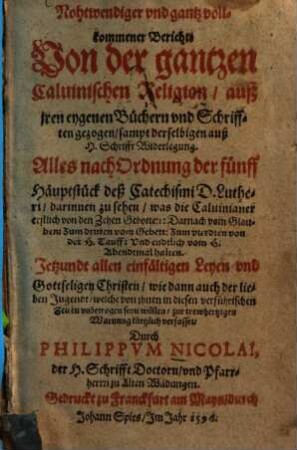 Nohtwendiger vnd gantz voll-
kommener Bericht/
Von der gantzen
Caluinischen Religion / auß
jren eygenen Büchern vnd Schriff-
ten gezogen / sampt derselbigen auß
H. Schrifft Widerlegung.
Alles nach Ordnung der fünff
Häuptstück deß Catechismi D. Luthe-
ri / darinnen zu sehen / was die Caluinianer
erstlich von den Zehen Gebotten: Darnach vom Glau-
ben: Zum dritten vom Gebett: Zum vierdten von
der H. Tauff: Vnd endtlich vom H.
Abendtmal halten.
Jetzundt allen einfältigen Leyen vnd
Gottseligen Christen / wie dann auch der lie-
ben Jugendt / welche von jhnen in diesen verführischen
Zeit vnbetrogen seyn wöllen / zur trewhertzigen
Warnung kürtzlich verfasset /
Durch
PHILIPPVM NICOLAI,
der H. Schrifft Doctorn / vnd Pfarr-
herrn zu Alten Wildungen.
Gedruckt zu Franckfurt am Mayn / durch
Johann Spies / Im Jahr 1596.